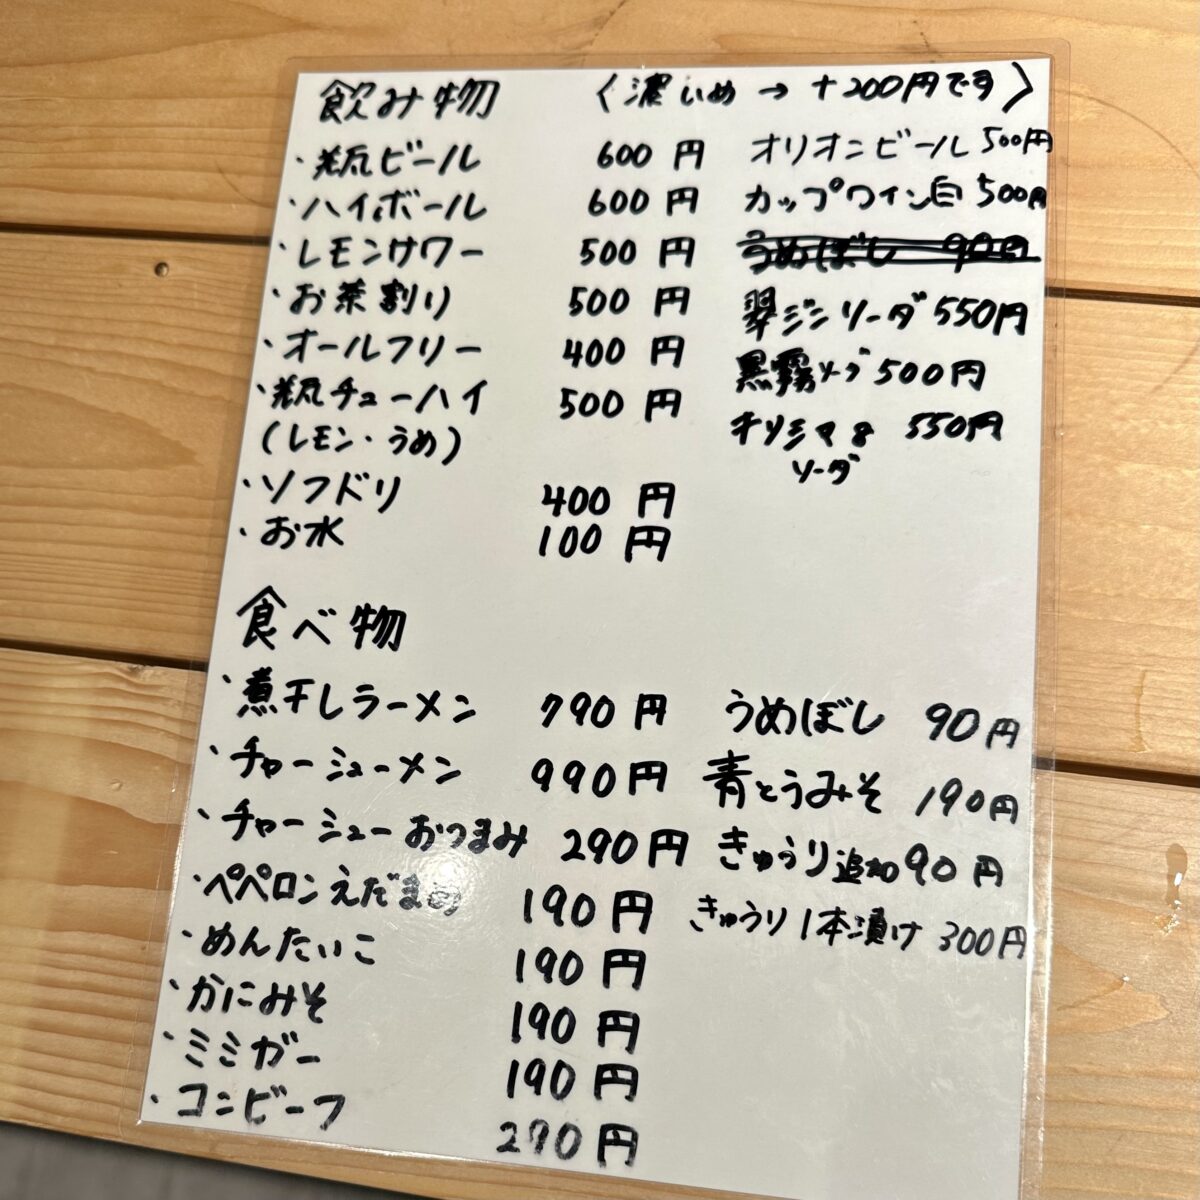 飲み物 〈濃いめ → +200円です〉
・瓶ビール 600円
・ハイボール 600円
・レモンサワー 500円
・お茶割り 500円
・オールフリー 400円
・瓶チューハイ 500円
(レモン・うめ)
・ソフドリ 400円
・お水 100円
オリオンビール 500円
カップワイン白 500円
うめぼし 90円
翠ジンソーダ 550円
黒霧ソーダ 500円
キリシマ8 550円
ソーダ
食べ物
・煮干しラーメン 790円
・チャーシューメン 990円
・チャーシューおつまみ 290円
・ペペロンえだまめ 190円
・めんたいこ 190円
・かにみそ 190円
・ミミガー 190円
・コンビーフ 290円
うめぼし 90円
青とうみそ 190円
きゅうり追加 90円
きゅうり1本漬け 300円